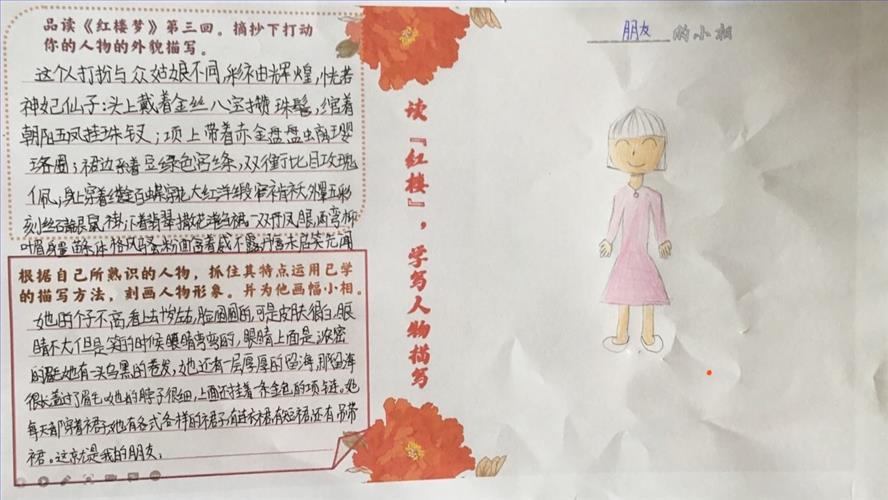 品读《红楼梦》第三回。摘抄下打动
你的人物的外貌描写。
这个人打扮与众姑娘不同,彩袖辉煌,恍若
神妃仙子:头上戴着金丝八宝攒珠髻,绾着
朝阳五凤挂珠钗;项上带着赤金盘螭璎
珞圈;裙边系着豆绿色宫绦,双衡比目玫瑰
佩,身上穿着缕金百蝶穿花大红洋缎窄裉袄,外罩五彩
刻丝石青银鼠褂,下着翡翠撒花洋绉裙。一双丹凤眼,两弯柳
叶眉,身量苗条,体格风骚,粉面含春威不露,丹唇未启笑先闻
根据自己所熟识的人物,抓住其特点运用已学
的描写方法,刻画人物形象。并为他画幅小相。
她的个子不高,看上去十岁左右,脸圆圆的,可是皮肤很白,眼
睛不大,但是笑的时候眼睛弯弯的,眼睛上面是浓密
的眉毛,她有一头乌黑的卷发,她还有一层厚厚的留海,那留海
很长盖过了眉毛。她的脖子很细,上面还挂着一条金色的项链。她
每天都穿着裙子,她有各式各样的裙子,有连衣裙,有短裙,还有吊带
裙。这就是我的朋友,
读『红楼』,学写人物描写
朋友 的小相